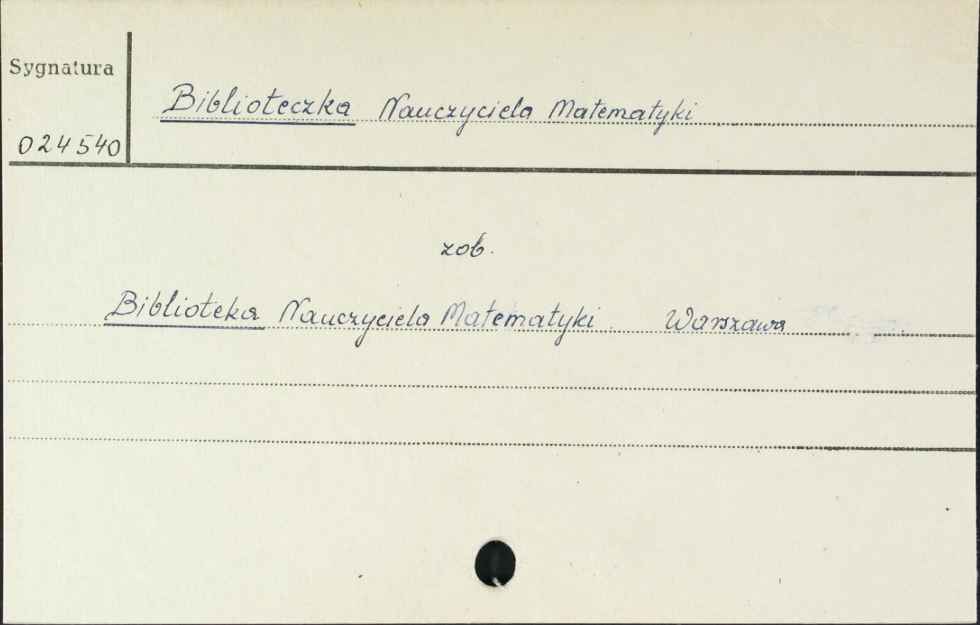 Sygnatura
Biblioteczka Nauczyciela Matematyki
024540
zob.
Biblioteka Nauczyciela Matematyki Warszawa